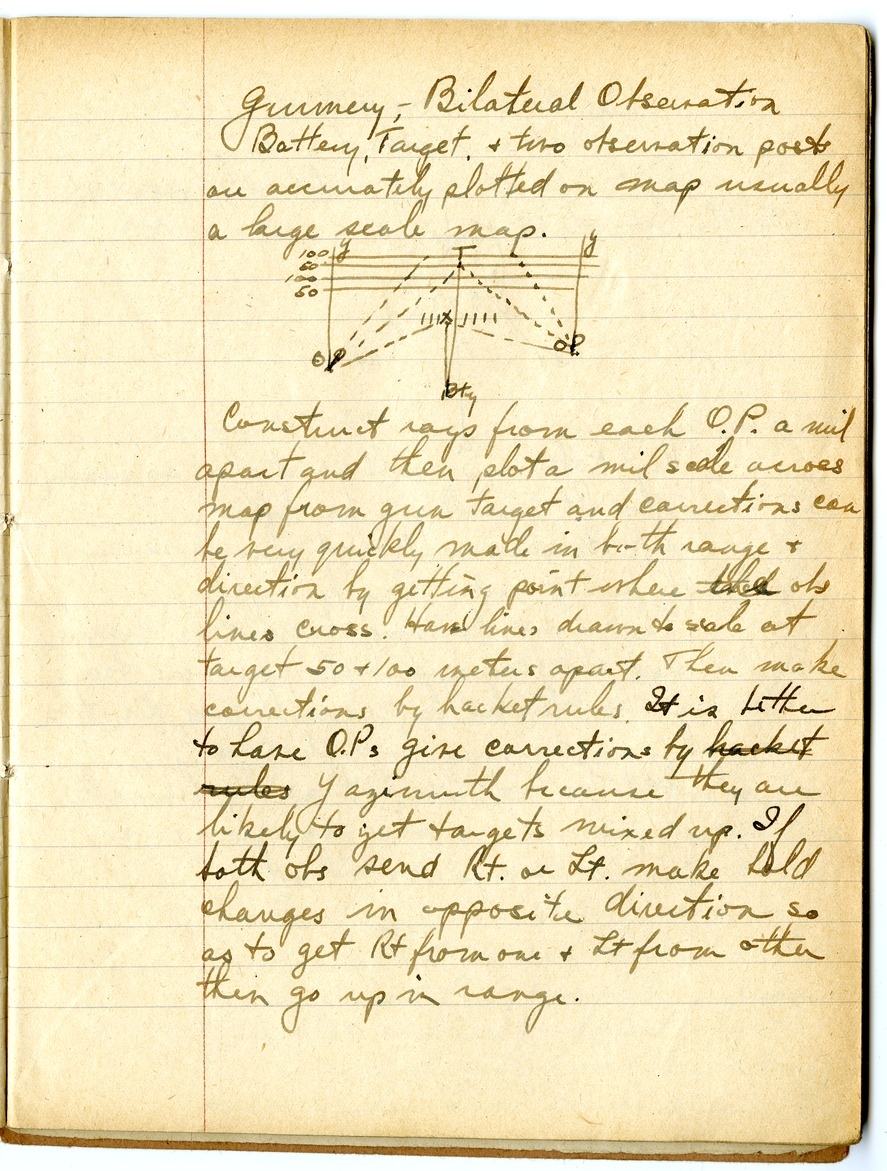 Gunnery,- Bilateral Observation
Battery, Target, & two observation posts
are accurately plotted on map usually
a large scale map.
y T y
100
50
100
50
OP OP
Bty
Construct rays from each O.P. a mil
apart and then plot a mil scale across
map from gun target and corrections can
be very quickly made in both range &
direction by getting point where obs
lines cross. Have lines drawn to scale at
target 50 & 100 meters apart. Then make
corrections by bracket rules. It is better
to have O.P.s give corrections by bracket
rules Y azimuth because they are
likely to get targets mixed up. If
both obs send Rt. or Lt. make bold
changes in opposite direction so
as to get Rt from one & Lt from other
then go up in range.